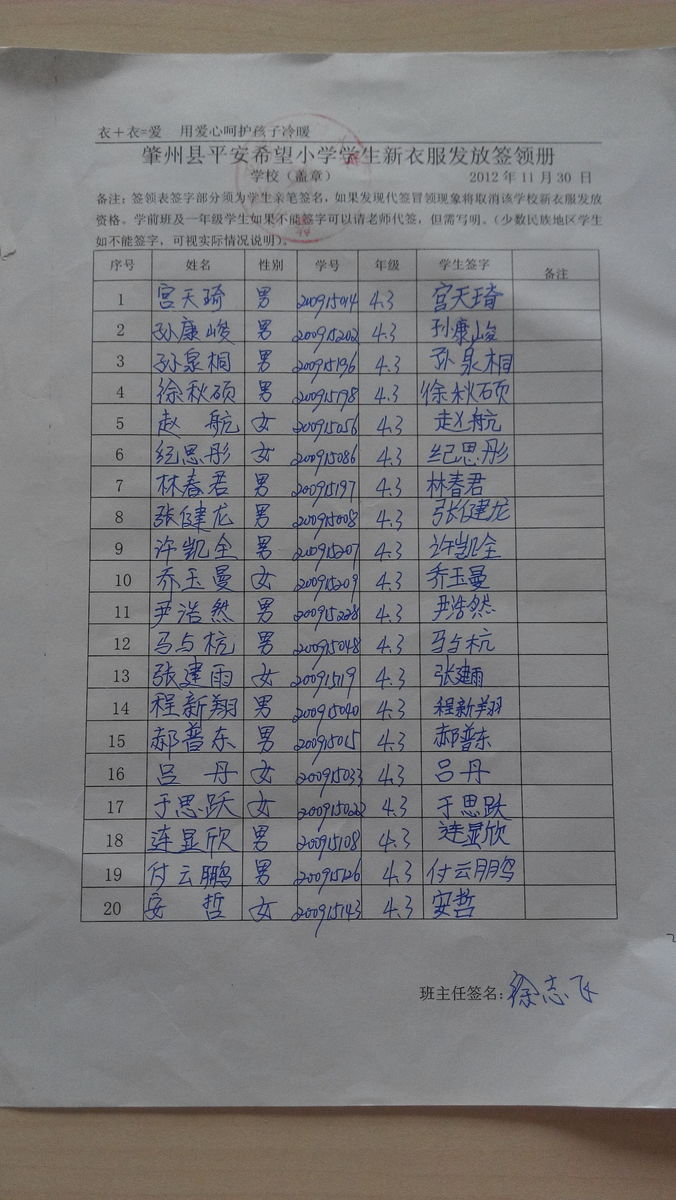 衣+衣=爱 用爱心呵护孩子冷暖
肇州县平安希望小学学生新衣服发放签领册
学校（盖章） 2012年11月30日
备注：签领表签字部分须为学生亲笔签名，如果发现代签冒领现象将取消该学校新衣服发放
资格。学前班及一年级学生如果不能签字可以请老师代签，但需写明。（少数民族地区学生
如不能签字，可视实际情况说明）。
序号 姓名 性别 学号 年级 学生签字 备注
1 宫天琦 男 200915014 4.3 宫天琦
2 孙康峻 男 200915202 4.3 孙康峻
3 孙泉桐 男 200915196 4.3 孙泉桐
4 徐秋硕 男 200915198 4.3 徐秋硕
5 赵航 女 200915056 4.3 赵航
6 纪思彤 女 200915086 4.3 纪思彤
7 林春君 男 200915197 4.3 林春君
8 张健龙 男 200915008 4.3 张健龙
9 许凯全 男 200915207 4.3 许凯全
10 乔玉曼 女 200915209 4.3 乔玉曼
11 尹浩然 男 200915228 4.3 尹浩然
12 马与杭 男 200915048 4.3 马与杭
13 张建雨 女 20091519 4.3 张建雨
14 程新翔 男 200915040 4.3 程新翔
15 郝普东 男 200915015 4.3 郝普东
16 吕丹 女 200915033 4.3 吕丹
17 于思跃 女 200915022 4.3 于思跃
18 连显欣 男 200915108 4.3 连显欣
19 付云鹏 男 200915126 4.3 付云鹏
20 安哲 女 200915143 4.3 安哲
班主任签名：徐志飞